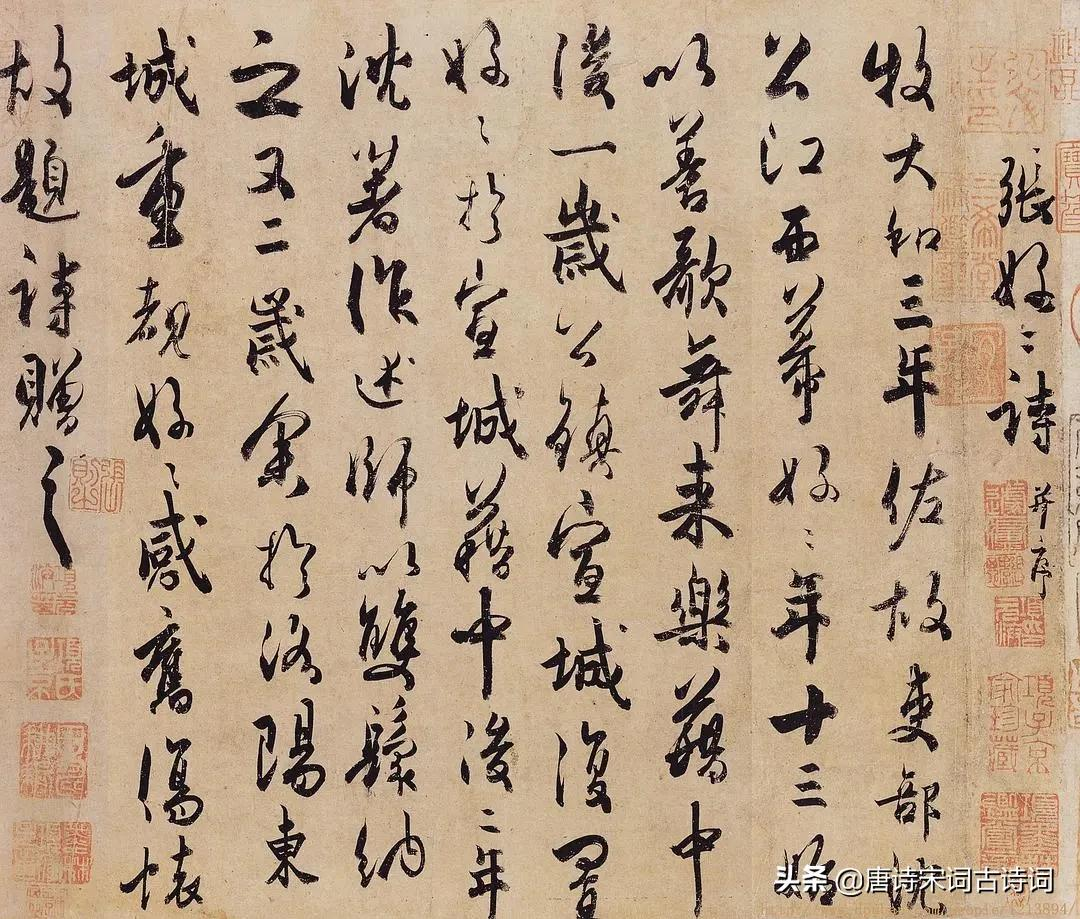 張好〻詩 并序
牧大和三年佐故吏部沈
公江西幕好〻年十三始
以善歌舞来樂籍中
後一歲公鎮宣城復置
好〻於宣城籍中後二年
沈著作述師以雙鬟納
之又二歲余於洛陽東
城重覩好〻感舊傷懷
故題詩贈之
項子京家珍藏
头条 @唐诗宋词古诗词